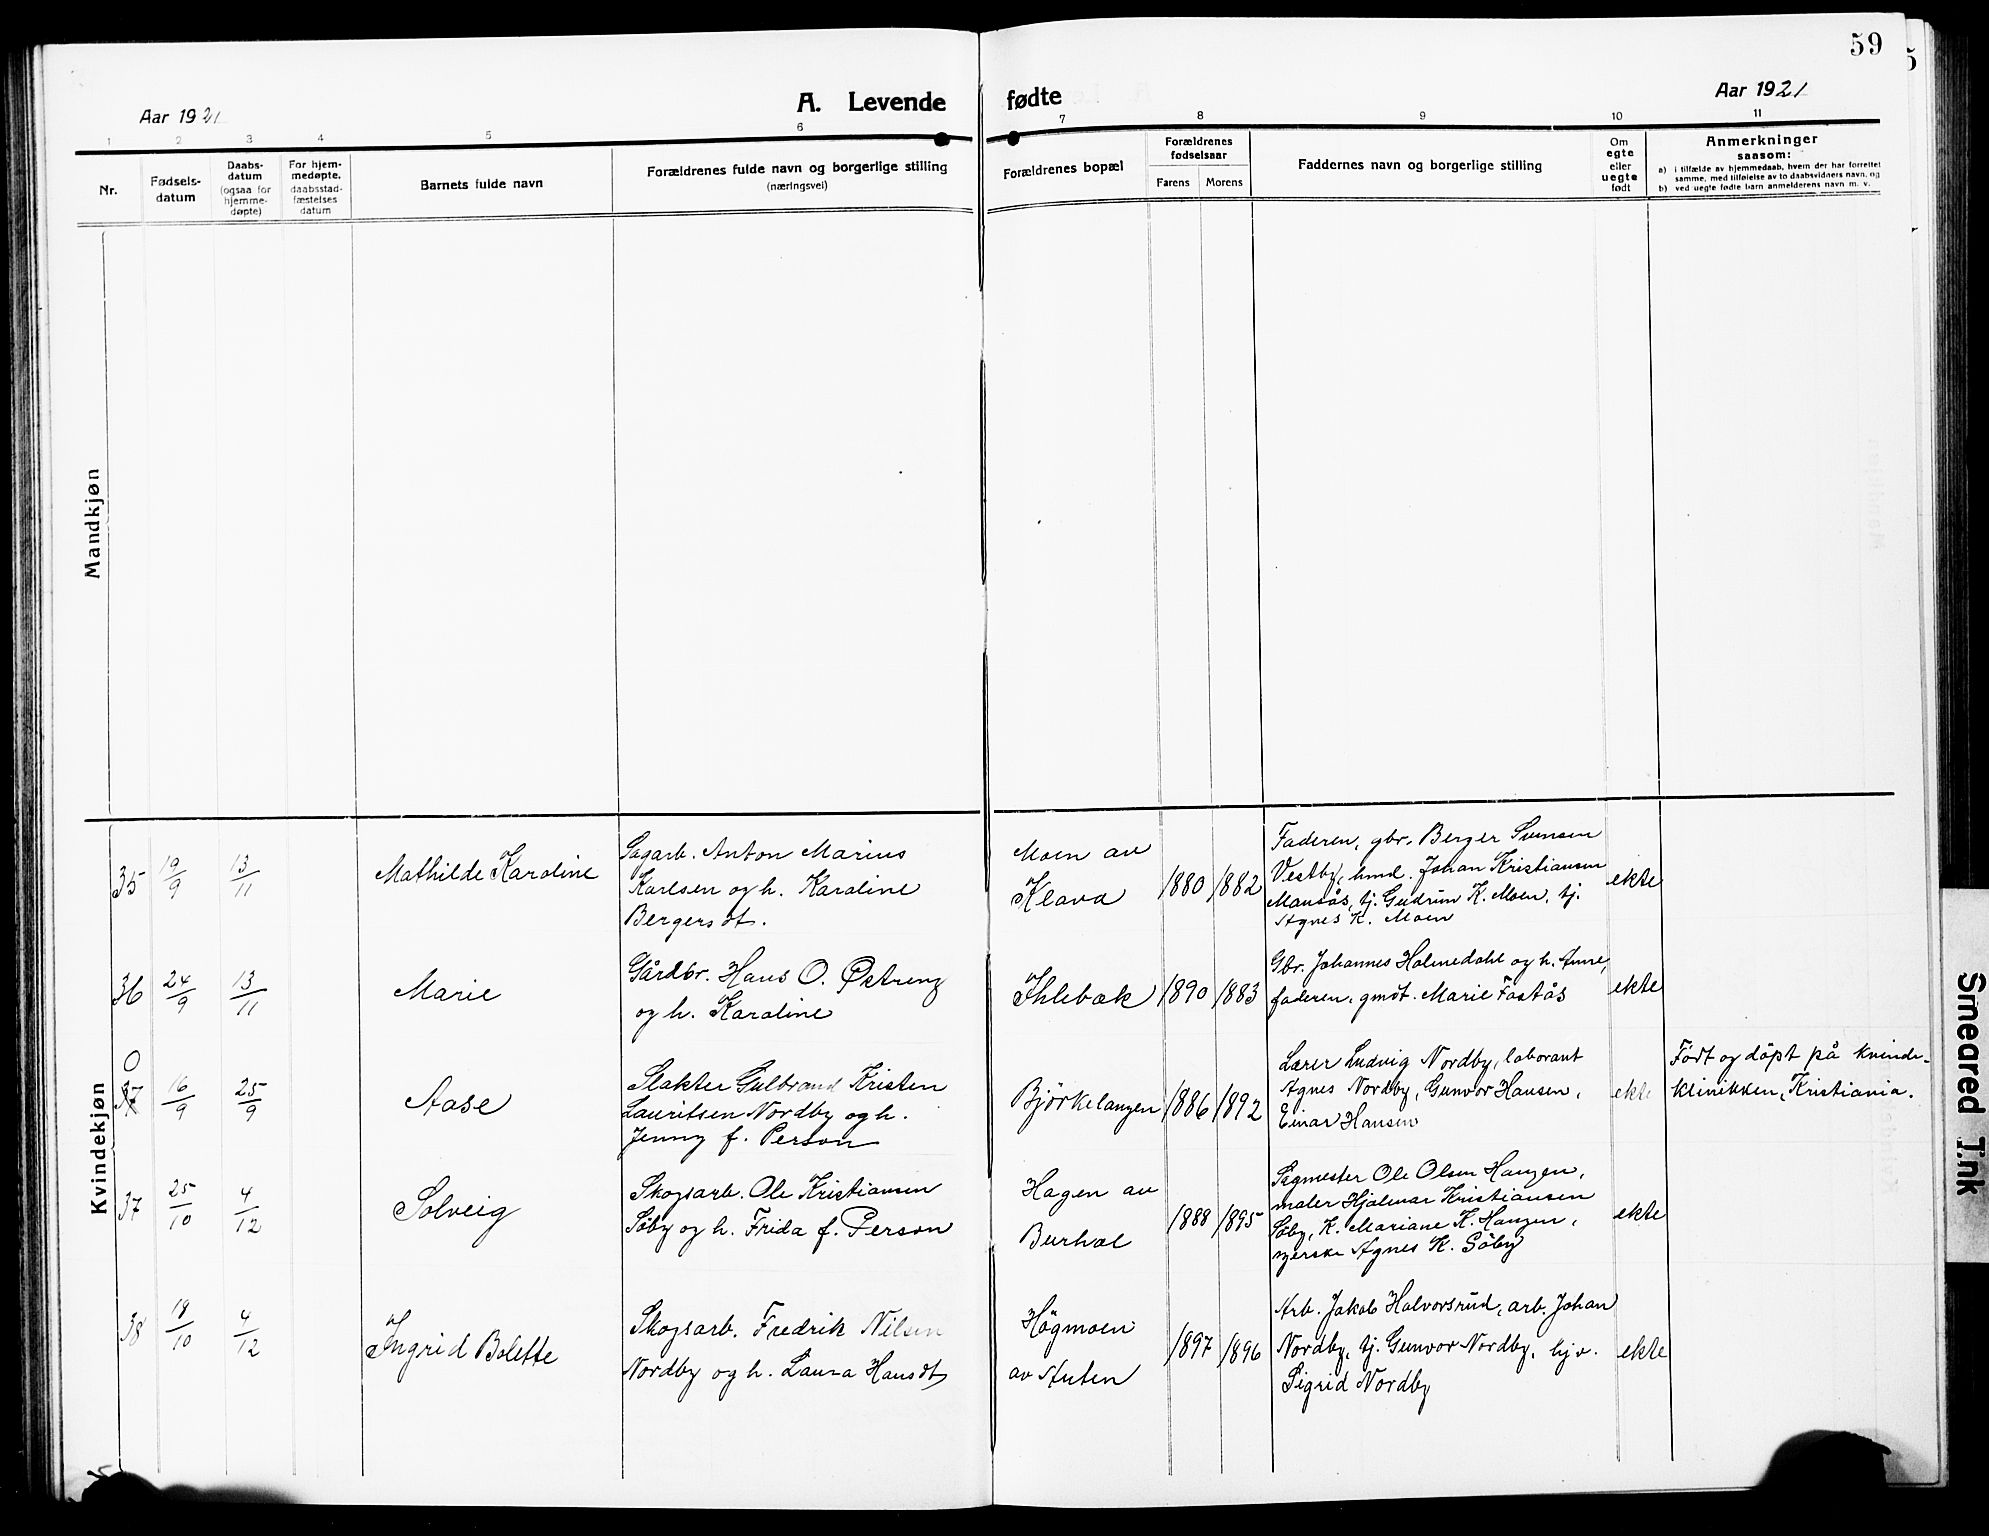 59
Aar 1921
A. Levende fødte
Aar 1921
1 2 3 4 5 6 7 8 9 10 11
Nr.
Fødsels-
datum
Daabs-
datum
(ogsaa for
hjemme-
døpte)
For hjem-
medøpte,
daabsstad-
fæstelses
datum
Barnets fulde navn
Forældrenes fulde navn og borgerlige stilling
(næringsvei)
Forældrenes bopæl
Forældrenes
fødselsaar
Farens Morens
Faddernes navn og borgerlige stilling
Om
egte
eller
uegte
født
Anmerkninger
saasom:
a) i tilfælde av hjemmedaab, hvem der har forrettet
samme, med tilføielse av to daabsvidners navn, og
b) ved uegte fødte barn anmelderens navn m. v.
Mandkjøn
Kvindekjøn
35 19/9 13/11
Mathilde Karoline
Sagarb. Anton Marius
Karlsen og h. Karoline
Bergersdt.
Moen av
Klava
1880 1882
Faderen, gbr. Berger Svensen
Vestby, hmd. Johan Kristiansen
Mansås, tj. Gudrun K. Moen, tj.
Agnes K. Moen
ekte
36 24/9 13/11
Marie
Gårdbr. Hans O. Østreng
og h. Karoline
Ihlebæk
1890 1883
Gbr. Johannes Holmedahl og h. Anne,
faderen, gmdt. Marie Fostås
ekte
0
37 16/9 25/9
Aase
Slakter Gulbrand Kristen
Lauritsen Nordby og h.
Jenny f. Person
Björkelangen
1886 1892
Lærer Ludvig Nordby, laborant
Agnes Nordby, Gunvor Hansen,
Einar Hansen
ekte
Födt og döpt på kvinde-
klinikken, Kristiania.
37 25/10 4/12
Solveig
Skogsarb. Ole Kristiansen
Söby og h. Frida f. Person
Hagen av
Burhol
1888 1895
Sagmester Ole Olsen Haugen,
maler Hjalmar Kristiansen
Söby, K. Mariane K. Haugen,
syerske Agnes K. Söby
ekte
38 18/10 4/12
Ingrid Bolette
Skogsarb. Fredrik Nilsen
Nordby og h. Laura Hansdt.
Högmoen
av Auten
1897 1896
Arb. Jakob Halvorsrud, arb. Johan
Nordby, tj. Gunvor Nordby, hjv.
Sigrid Nordby
ekte
Smeared Ink